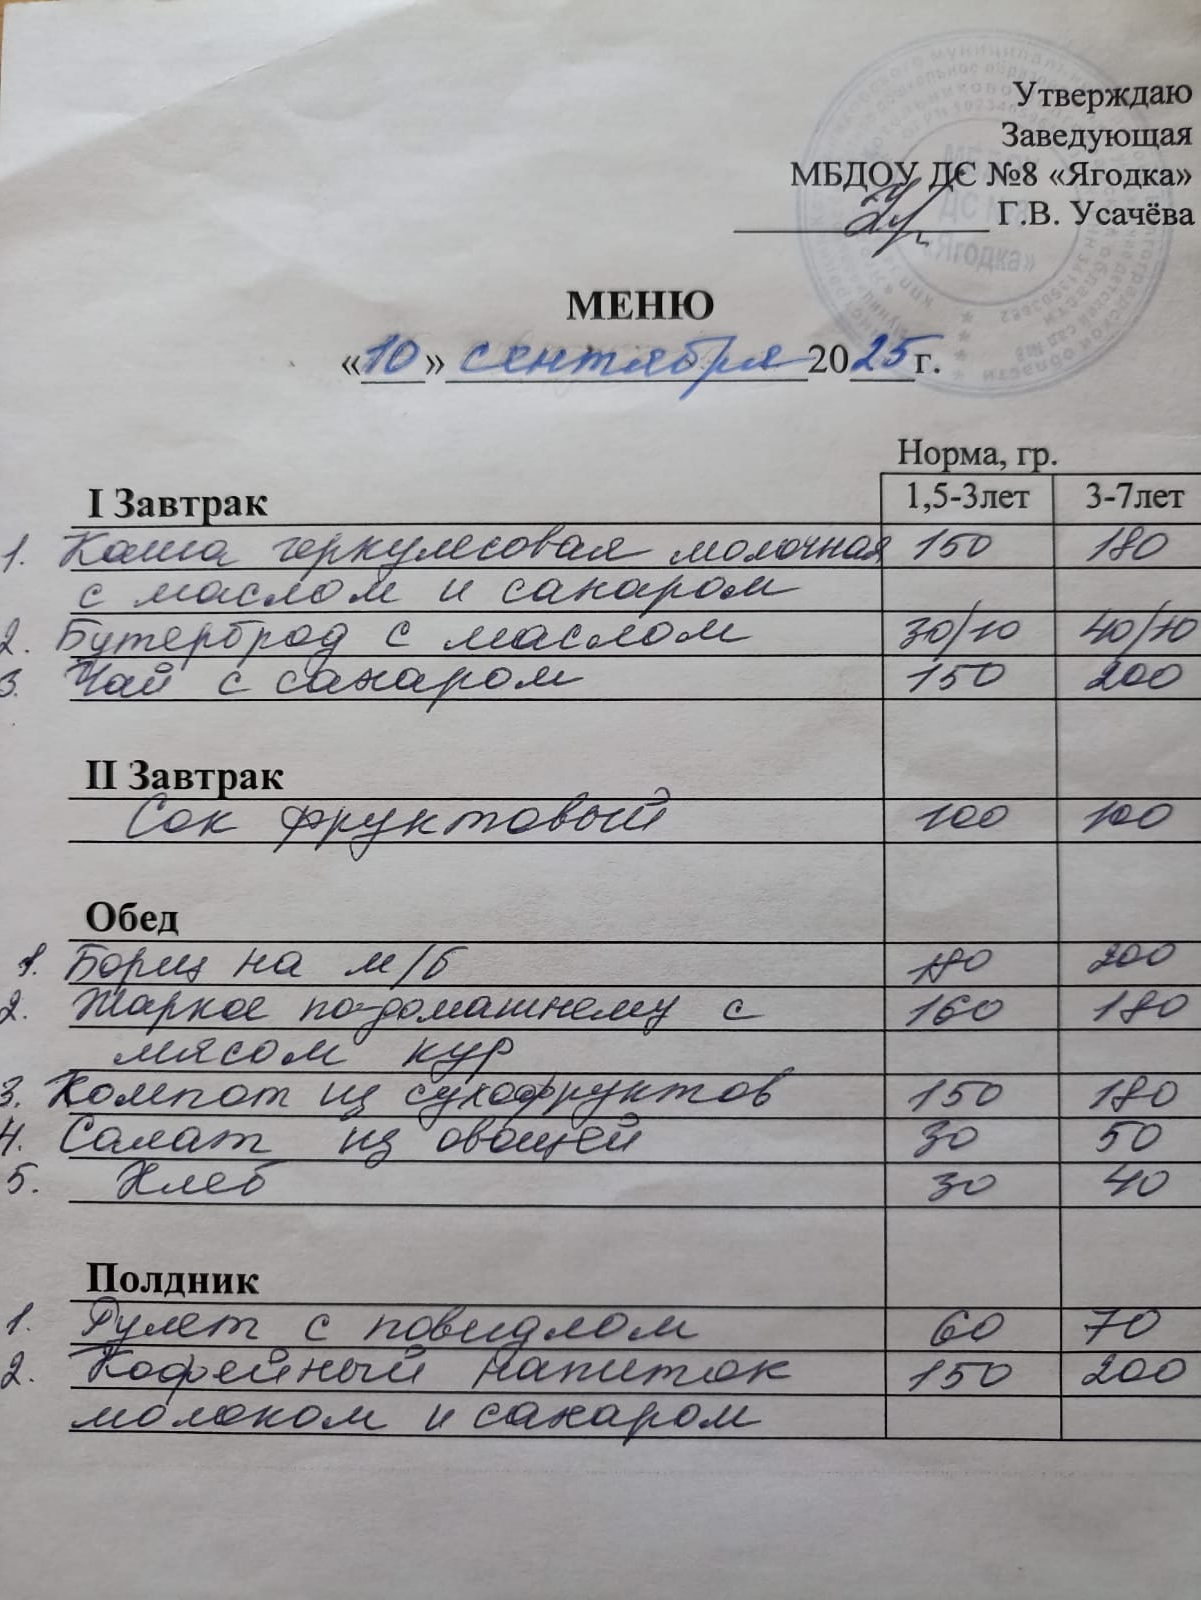 Утверждаю
Заведующая
МБДОУ ДС №8 «Ягодка»
Г.В. Усачёва
МЕНЮ
«10» сентября 2025г.
Норма, гр.
I Завтрак 1,5-3лет 3-7лет
1. Каша геркулесовая молочная 150 180
с маслом и сахаром
2. Бутерброд с маслом 30/10 40/10
3. Чай с сахаром 150 200
II Завтрак
Сок фруктовый 100 100
Обед
1. Борщ на м/б 180 200
2. Жаркое по-домашнему с 160 180
мясом кур
3. Компот из сухофруктов 150 180
4. Салат из овощей 30 50
5. Хлеб 30 40
Полдник
1. Рулет с повидлом 60 70
2. Кофейный напиток 150 200
молоком и сахаром